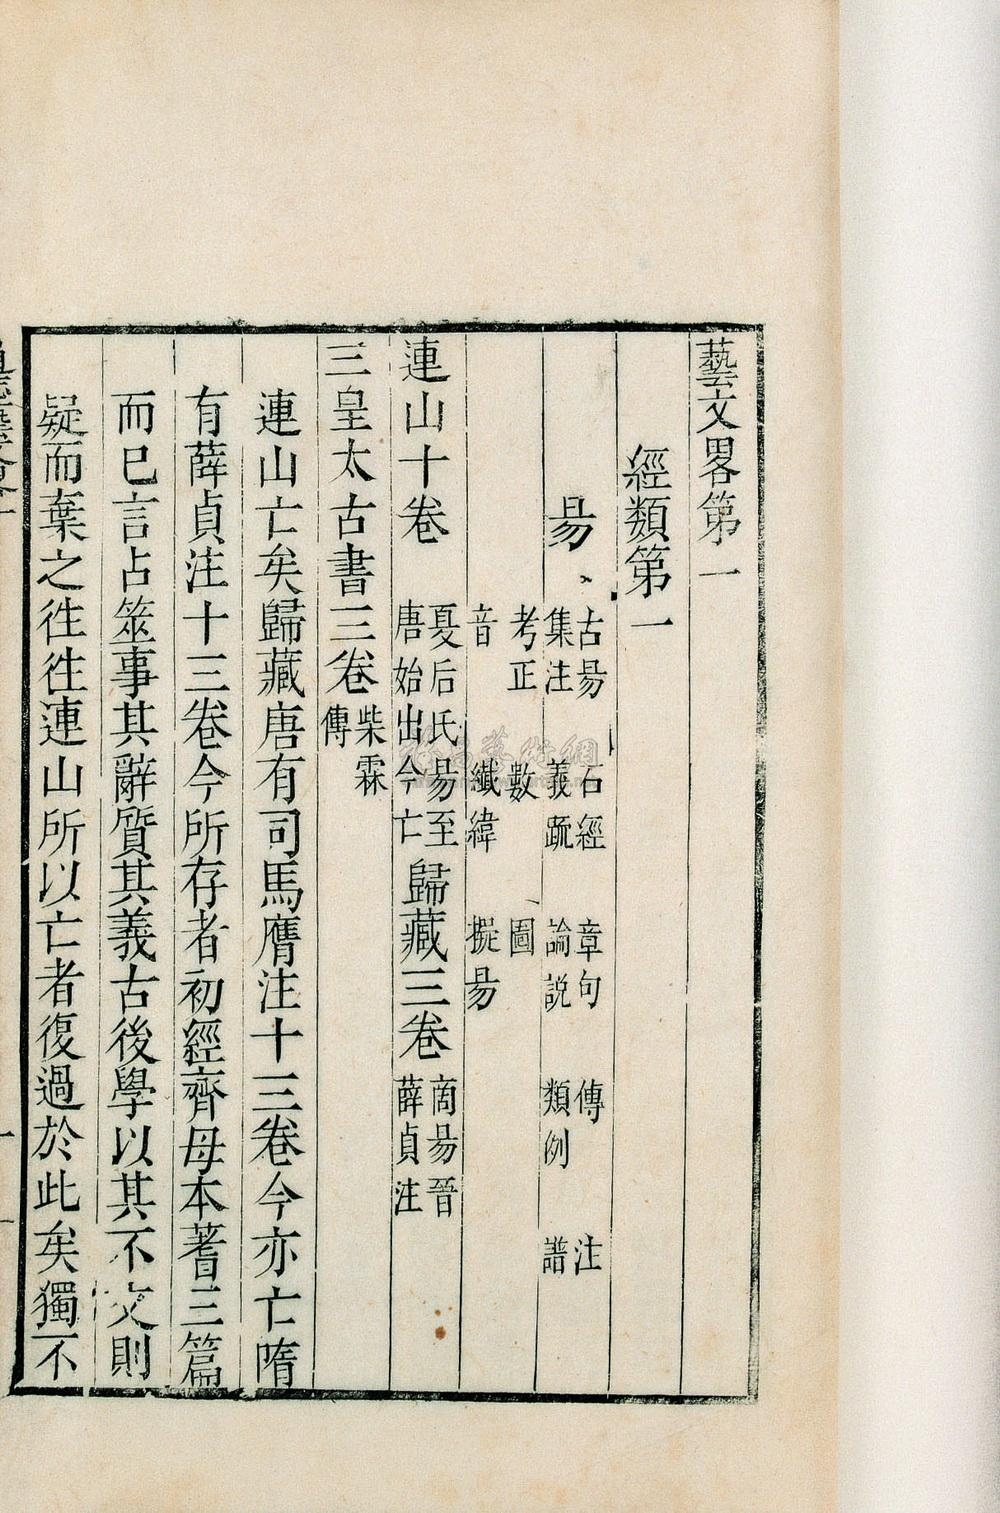 藝文畧第一
經類第一
易 古易 石經 章句 傳 注
集注 義疏 論說 類例 譜
考正 數 圖
音 讖緯 擬易
連山十卷 夏后氏易至唐始出今亡 歸藏三卷 商易晉薛貞注
三皇太古書三卷 柴霖傳
連山亡矣歸藏唐有司馬膺注十三卷今亦亡隋
有薛貞注十三卷今所存者初經齊母本蓍三篇
而已言占筮事其辭質其義古後學以其不文則
疑而棄之往往連山所以亡者復過於此矣獨不